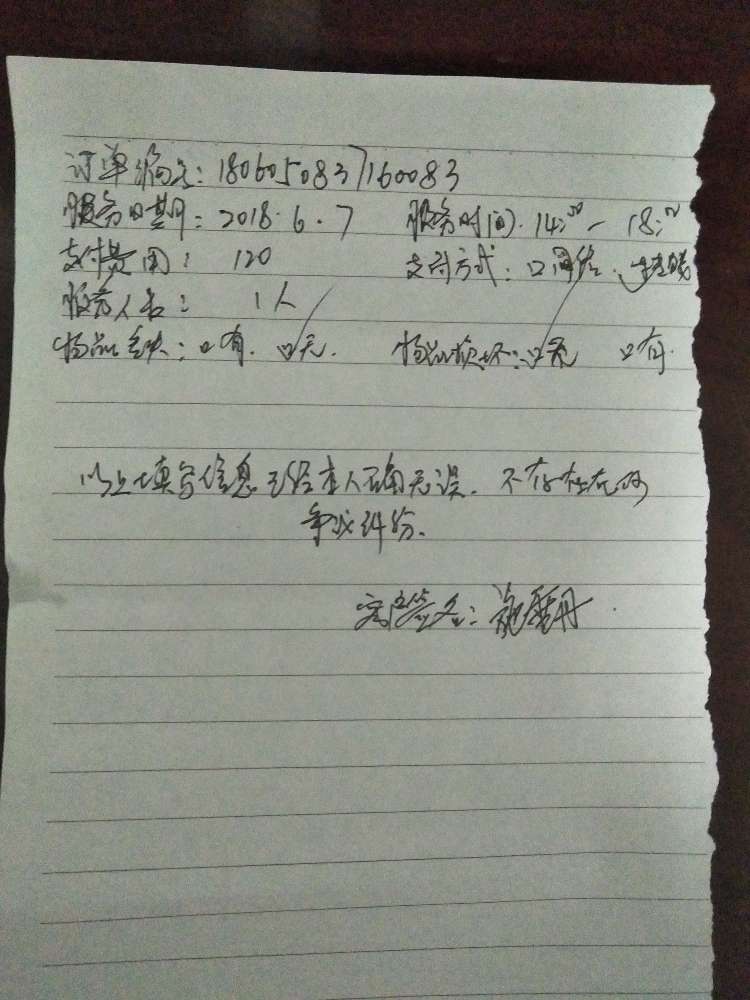 订单编号：1806050837160083
服务日期：2018.6.7 服务时间：14:00 - 18:00
支付费用：120 支付方式：口网络
服务人名：1人
物品丢失：口有. 口无. 物品损坏：口无 口有.
以上填写信息已经本人确无误. 不存在任何
争议纠纷.
客户签名：施